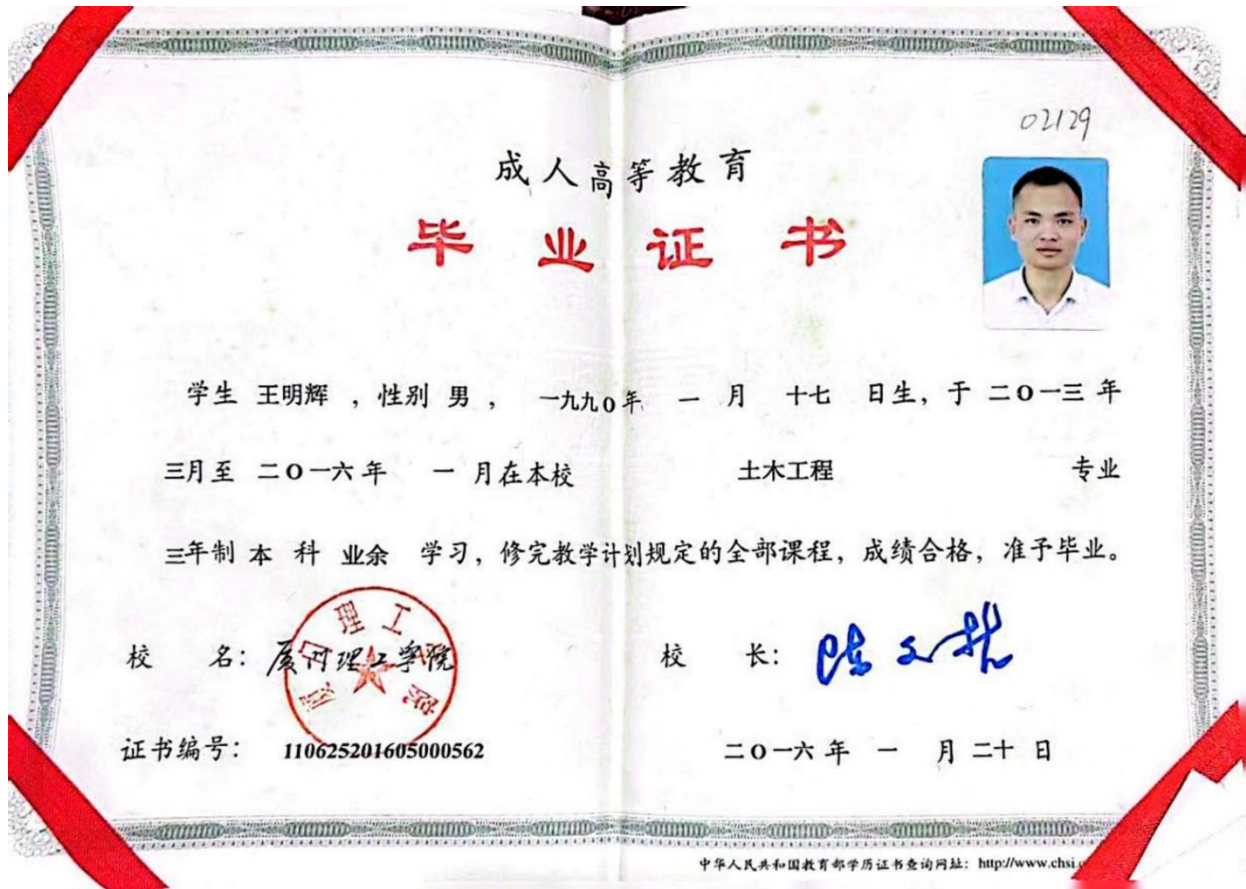 02129
成人高等教育
毕业证书
学生 王明辉 ，性别 男 ， 一九九0年 一 月 十七 日生，于 二0一三 年
三月至 二0一六年 一 月在本校 土木工程 专业
三年制 本 科 业余 学习，修完教学计划规定的全部课程，成绩合格，准予毕业。
校 名：厦门理工学院
厦门理工学院
校 长：陈文哲
证书编号： 110625201605000562
二0一六 年 一 月 二十 日
中华人民共和国教育部学历证书查询网址：http://www.chsi.